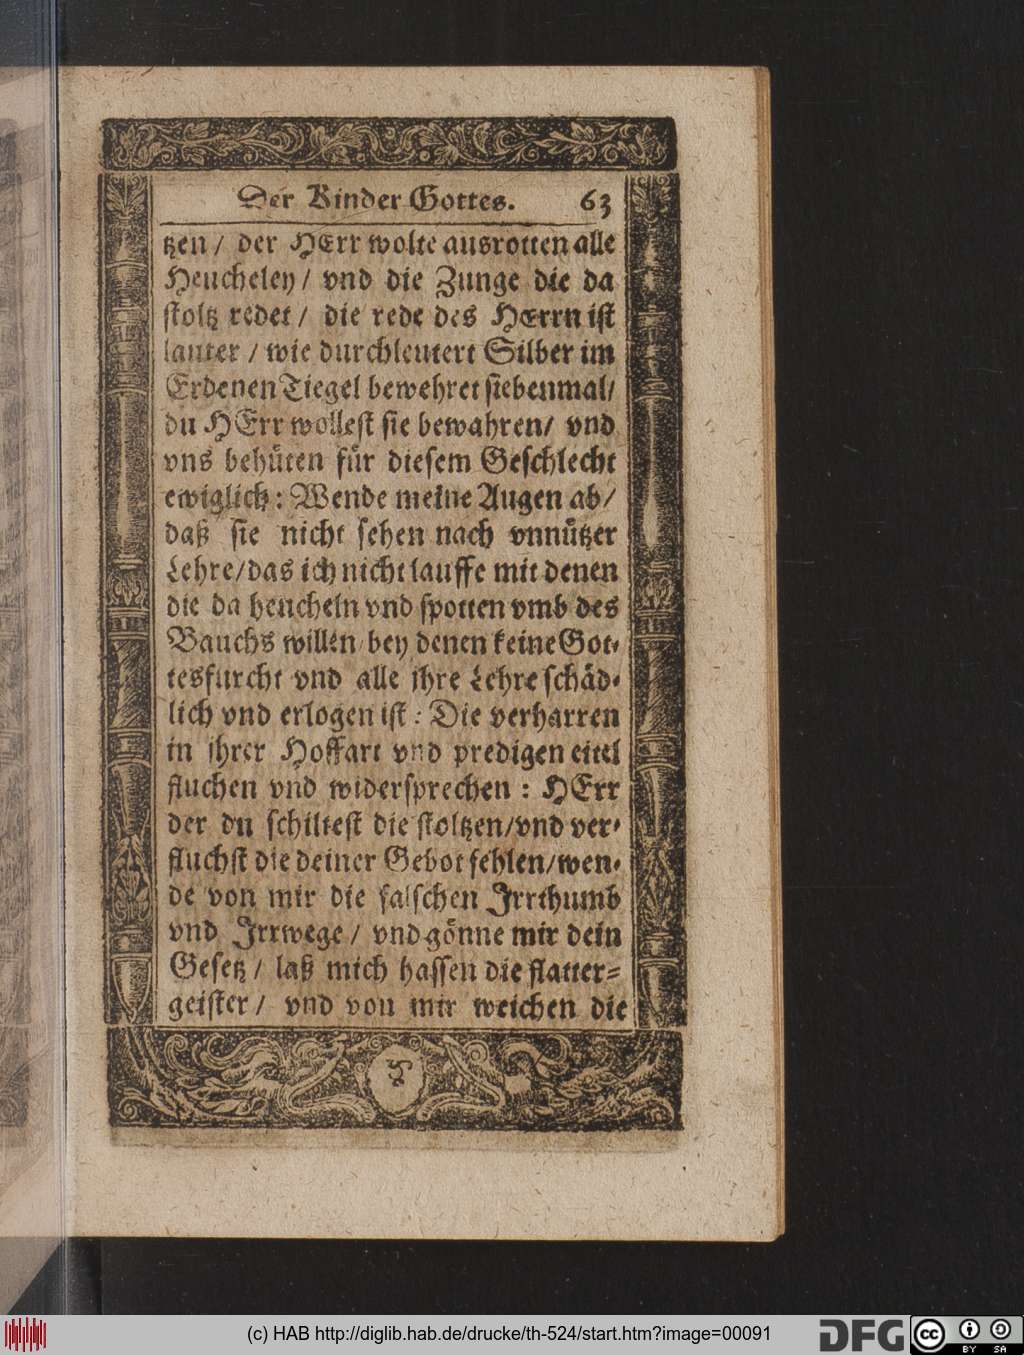 Der Kinder Gottes. 63
tzen / der HErr wolte ausrotten alle
Heucheley / vnd die Zunge die da
stoltz redet / die rede des HErrn ist
lauter / wie durchleutert Silber im
Erdenen Tiegel bewehret siebenmal/
du HErr wollest sie bewahren/ vnd
vns behüten für diesem Geschlecht
ewiglich: Wende meine Augen ab/
daß sie nicht sehen nach vnnützer
Lehre/das ich nicht lauffe mit denen
die da heucheln vnd spotten vmb des
Bauchs willen/bey denen keine Got-
tesfurcht vnd alle ihre Lehre schäd-
lich vnd erlogen ist: Die verharren
in ihrer Hoffart vnd predigen eitel
fluchen vnd widersprechen : HErr
der du schiltest die stoltzen/vnd ver-
fluchst die deiner Gebot fehlen/wen-
de von mir die falschen Irrthumb
vnd Irrwege / vnd gönne mir dein
Gesetz / laß mich hassen die flatter-
geister / vnd von mir weichen die
(c) HAB http://diglib.hab.de/drucke/th-524/start.htm?image=00091
DFG
cc BY SA